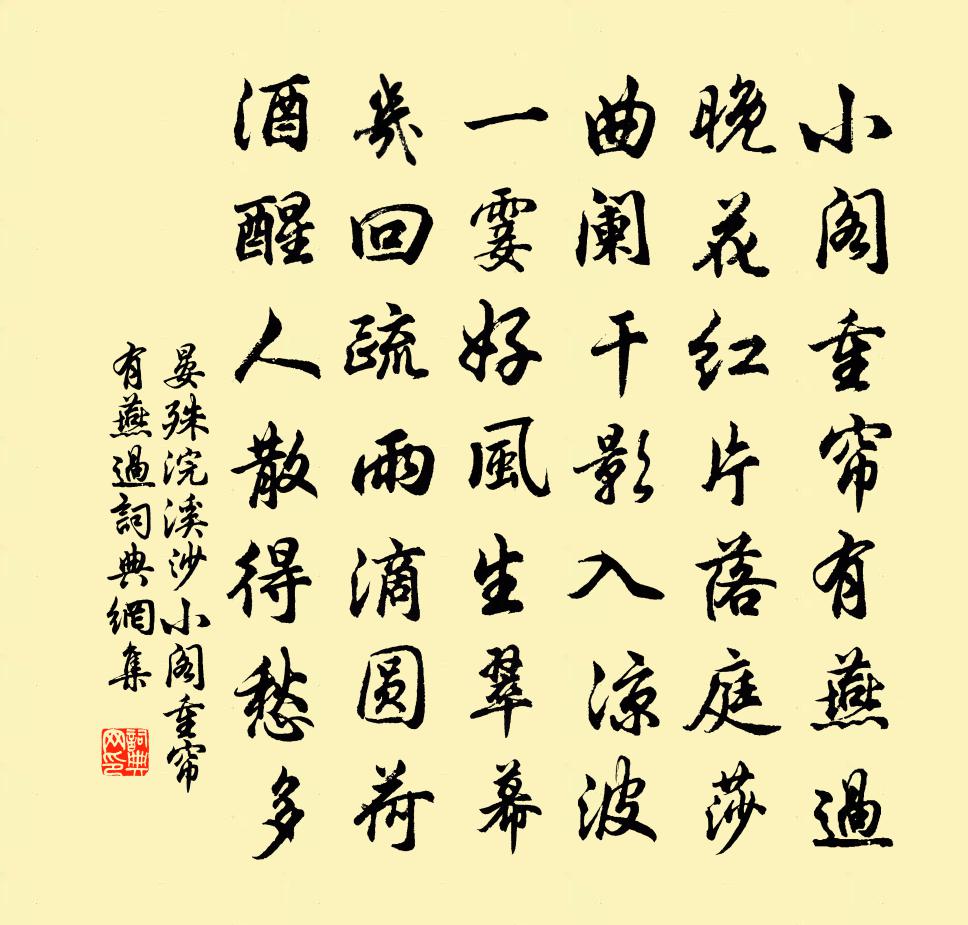 小阁重帘有燕過
晚花红片落庭莎
曲阑干影入凉波
一霎好風生翠幕
幾回疏雨滴圆荷
酒醒人散得愁多
晏殊浣溪沙小阁重帘
有燕過詞典網集
詞典
网印